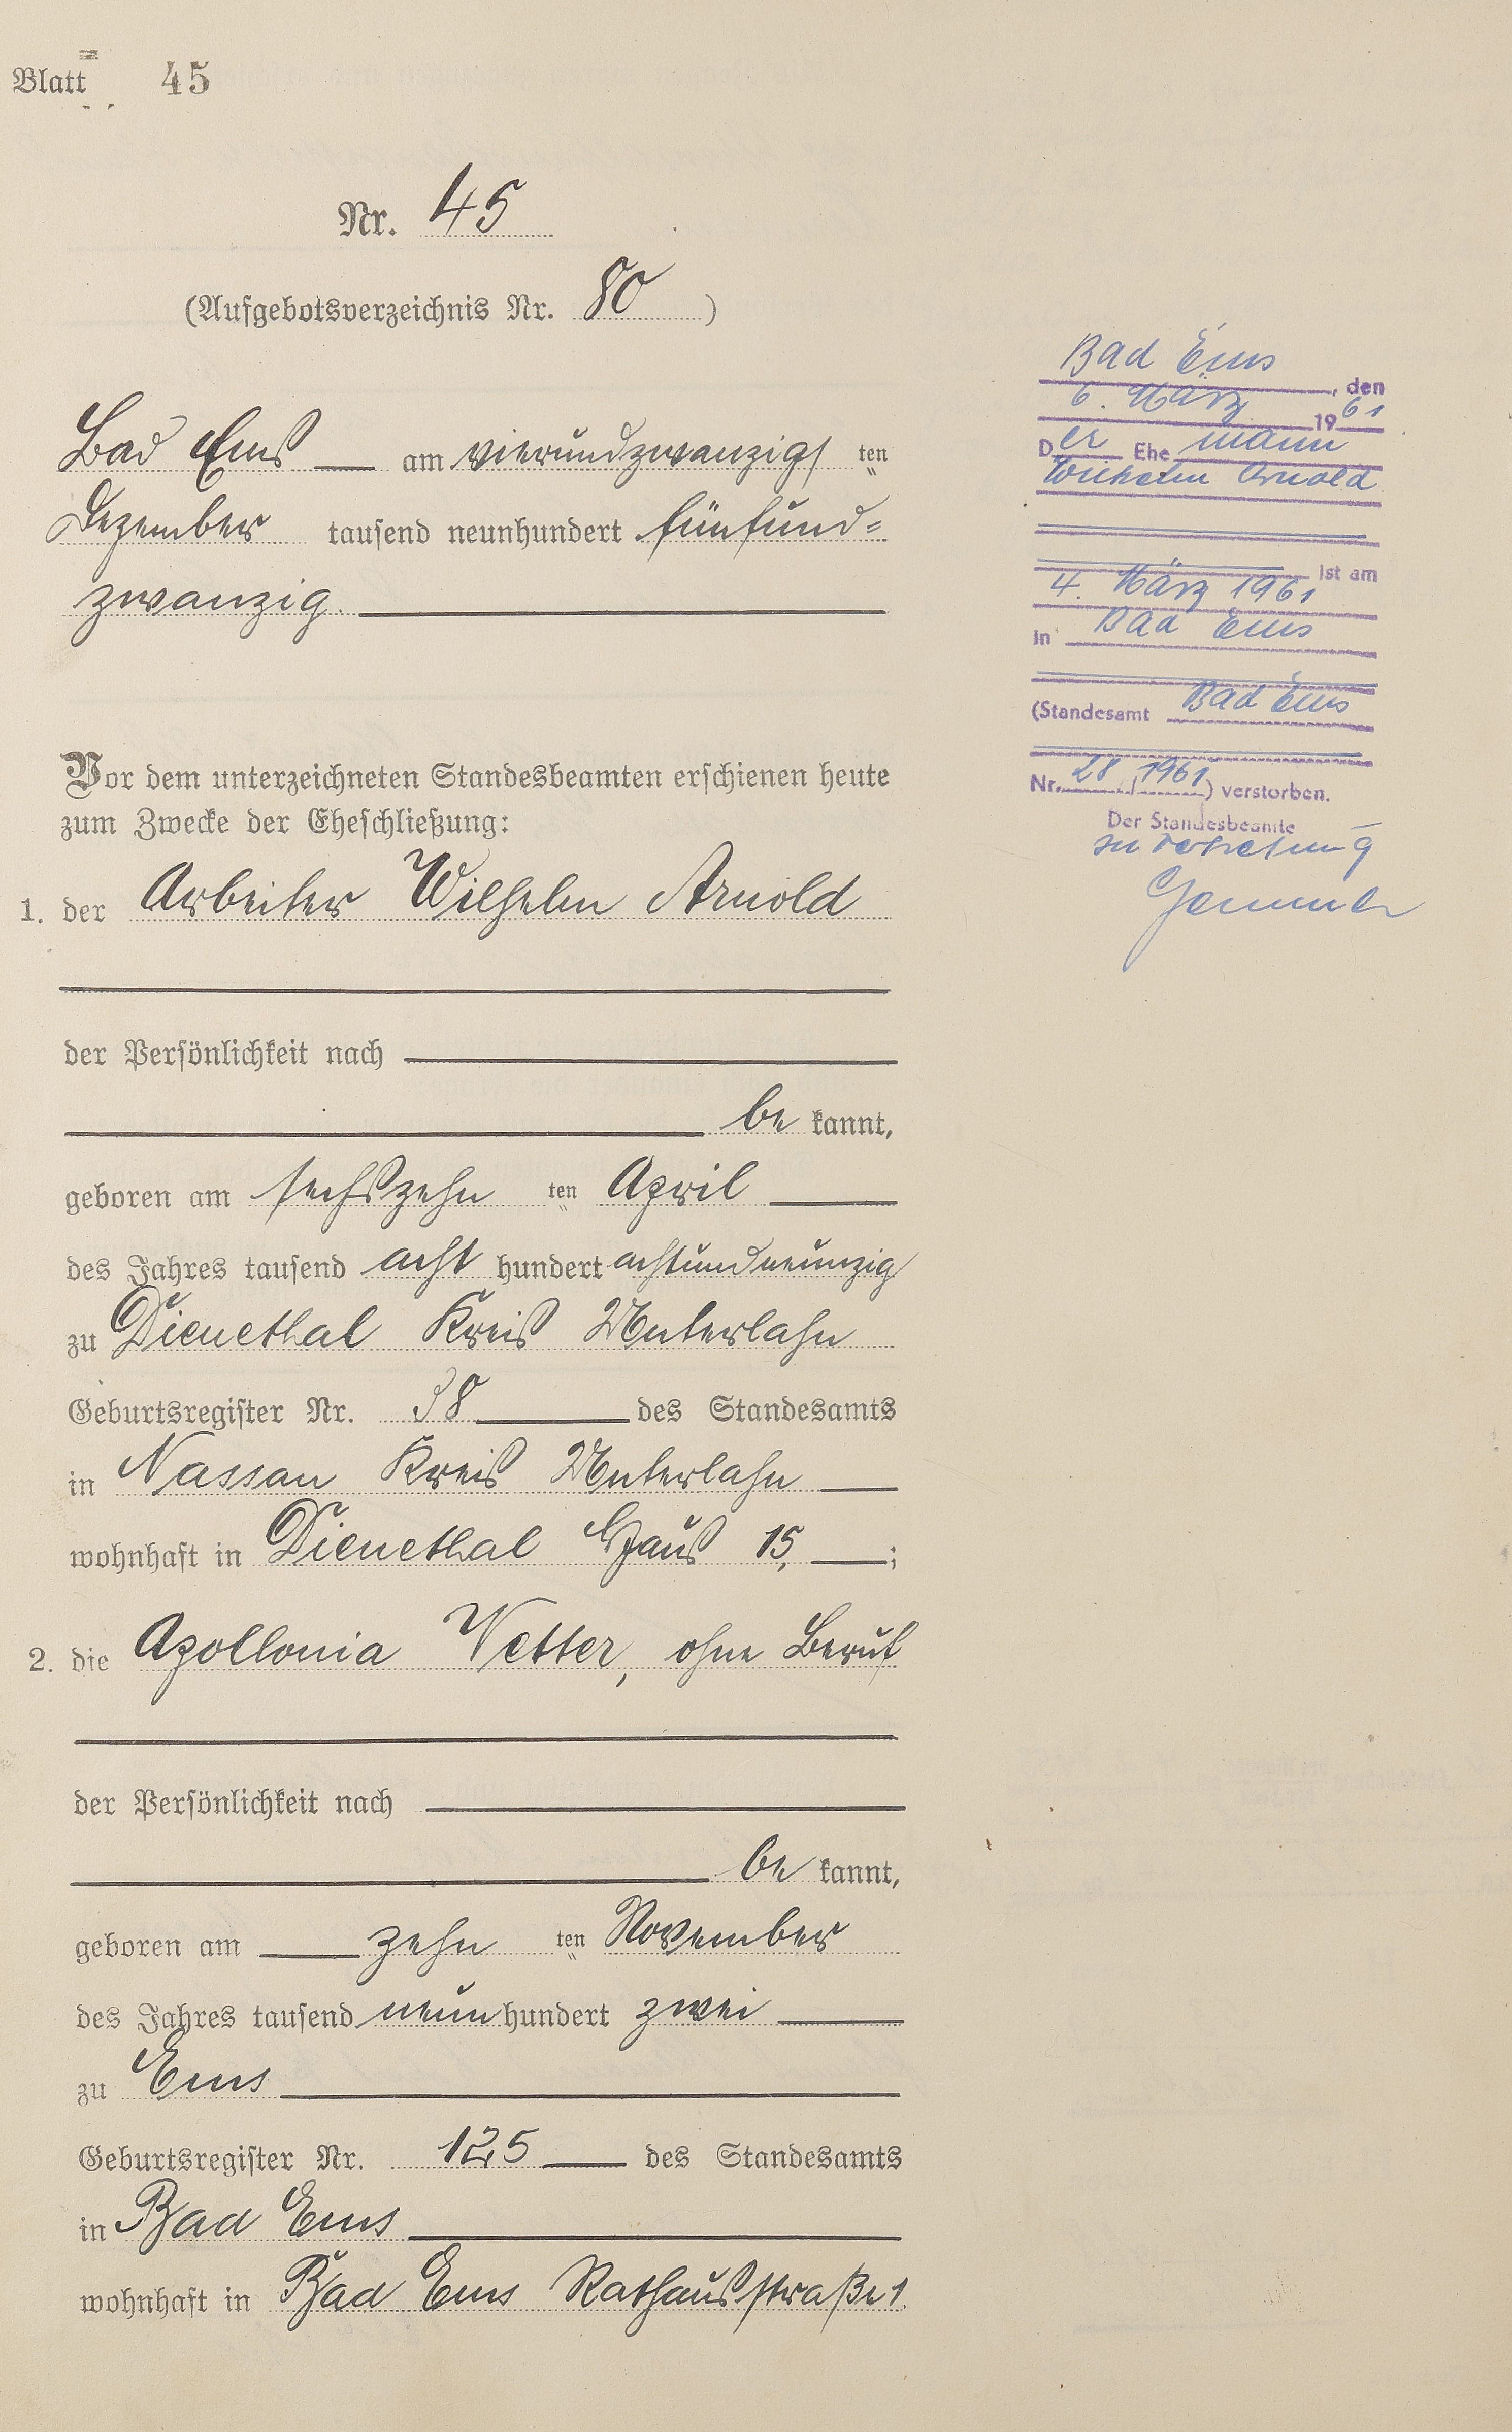 Blatt 45
Nr. 45
(Aufgebotsverzeichnis Nr. 80)
Bad Ems am vierundzwanzigsten
Dezember tausend neunhundert fünfund=
zwanzig.
Vor dem unterzeichneten Standesbeamten erschienen heute
zum Zwecke der Eheschließung:
1. der Arbeiter Wilhelm Arnold
der Persönlichkeit nach
be kannt,
geboren am sechszehn ten April
des Jahres tausend acht hundert achtundneunzig
zu Dienethal Kreis Unterlahn
Geburtsregister Nr. 38 des Standesamts
in Nassau Kreis Unterlahn
wohnhaft in Dienethal Haus 15, ;
2. die Apollonia Vetter, ohne Beruf
der Persönlichkeit nach
be kannt,
geboren am zehn ten November
des Jahres tausend neun hundert zwei
zu Ems
Geburtsregister Nr. 125 des Standesamts
in Bad Ems
wohnhaft in Bad Ems Rathausstraße 1.
Bad Ems, den
6. März 1961
Der Ehe mann
Wilhelm Arnold
ist am
4. März 1961
in Bad Ems
(Standesamt Bad Ems
Nr. 28/1961) verstorben.
Der Standesbeamte
In Vertretung